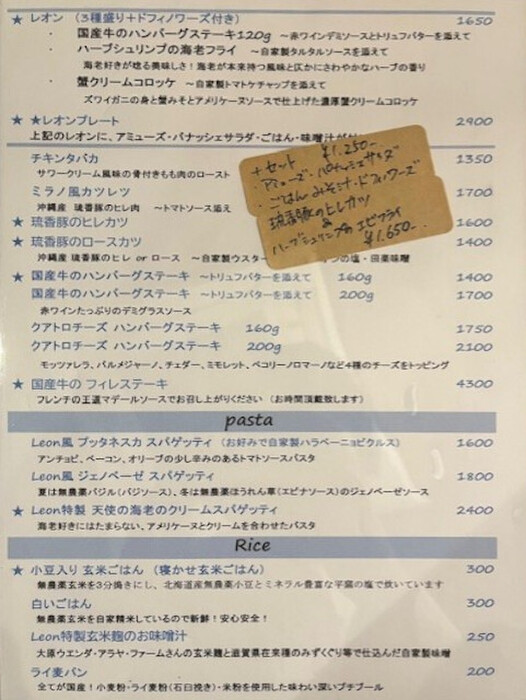 ★ レオン （3種盛り＋ドフィノワーズ付き） 1650
・ 国産牛のハンバーグステーキ120g ～赤ワインデミソースとトリュフバターを添えて
・ ハーブシュリンプの海老フライ ～自家製タルタルソースを添えて
海老好きが唸る美味しさ！海老が本来持つ風味と仄かにさわやかなハーブの香り
・ 蟹クリームコロッケ ～自家製トマトケチャップを添えて
ズワイガニの身と蟹みそとアメリケーヌソースで仕上げた濃厚蟹クリームコロッケ
★ ★レオンプレート 2900
上記のレオンに、アミューズ・パナッシェサラダ・ごはん・味噌汁が
チキンタバカ 1350
サワークリーム風味の骨付きもも肉のロースト
ミラノ風カツレツ 1700
沖縄産 琉香豚のヒレ肉 ～トマトソース添え
★ 琉香豚のヒレカツ 1600
★ 琉香豚のロースカツ 1400
沖縄産 琉香豚のヒレ or ロース ～自家製ウスター の塩・田楽味噌
＋セット ¥1.250-
・アミューズ・パナッシェサラダ
・ごはん みそ汁・ドフィノワーズ
琉香豚のヒレカツ
&
ハーブシュリンプの エビフライ
¥1.650-
★ 国産牛のハンバーグステーキ ～トリュフバターを添えて 160g 1400
国産牛のハンバーグステーキ ～トリュフバターを添えて 200g 1700
赤ワインたっぷりのデミグラスソース
クアトロチーズ ハンバーグステーキ 160g 1750
クアトロチーズ ハンバーグステーキ 200g 2100
モッツァレラ、パルメジャーノ、チェダー、ミモレット、ペコリーノロマーノなど4種のチーズをトッピング
★ 国産牛の フィレステーキ 4300
フレンチの王道マデールソースでお召し上がりください （お時間頂戴致します）
pasta
Leon風 プッタネスカ スパゲッティ （お好みで自家製ハラペーニョピクルス） 1600
アンチョビ、ベーコン、オリーブの少し辛みのあるトマトソースパスタ
Leon風 ジェノベーゼ スパゲッティ 1800
夏は無農薬バジル（バジソース）、冬は無農薬ほうれん草（エピナソース）のジェノベーゼソース
★ Leon特製 天使の海老のクリームスパゲッティ 2400
海老好きにはたまらない、アメリケーヌとクリームを合わせたパスタ
Rice
★ 小豆入り 玄米ごはん （寝かせ玄米ごはん） 300
無農薬玄米を3分搗きにし、北海道産無農薬小豆とミネラル豊富な宇宙の塩で炊いています
白いごはん 300
無農薬玄米を自家精米しているので新鮮！安心安全！
Leon特製玄米麹のお味噌汁 250
大原ウエンダ・アラヤ・ファームさんの玄米麹と滋賀県在来種のみずくぐり等で仕込んだ自家製味噌
ライ麦パン 200
全てが国産！小麦粉・ライ麦粉（石臼挽き）・米粉を使用した味わい深いプチブール